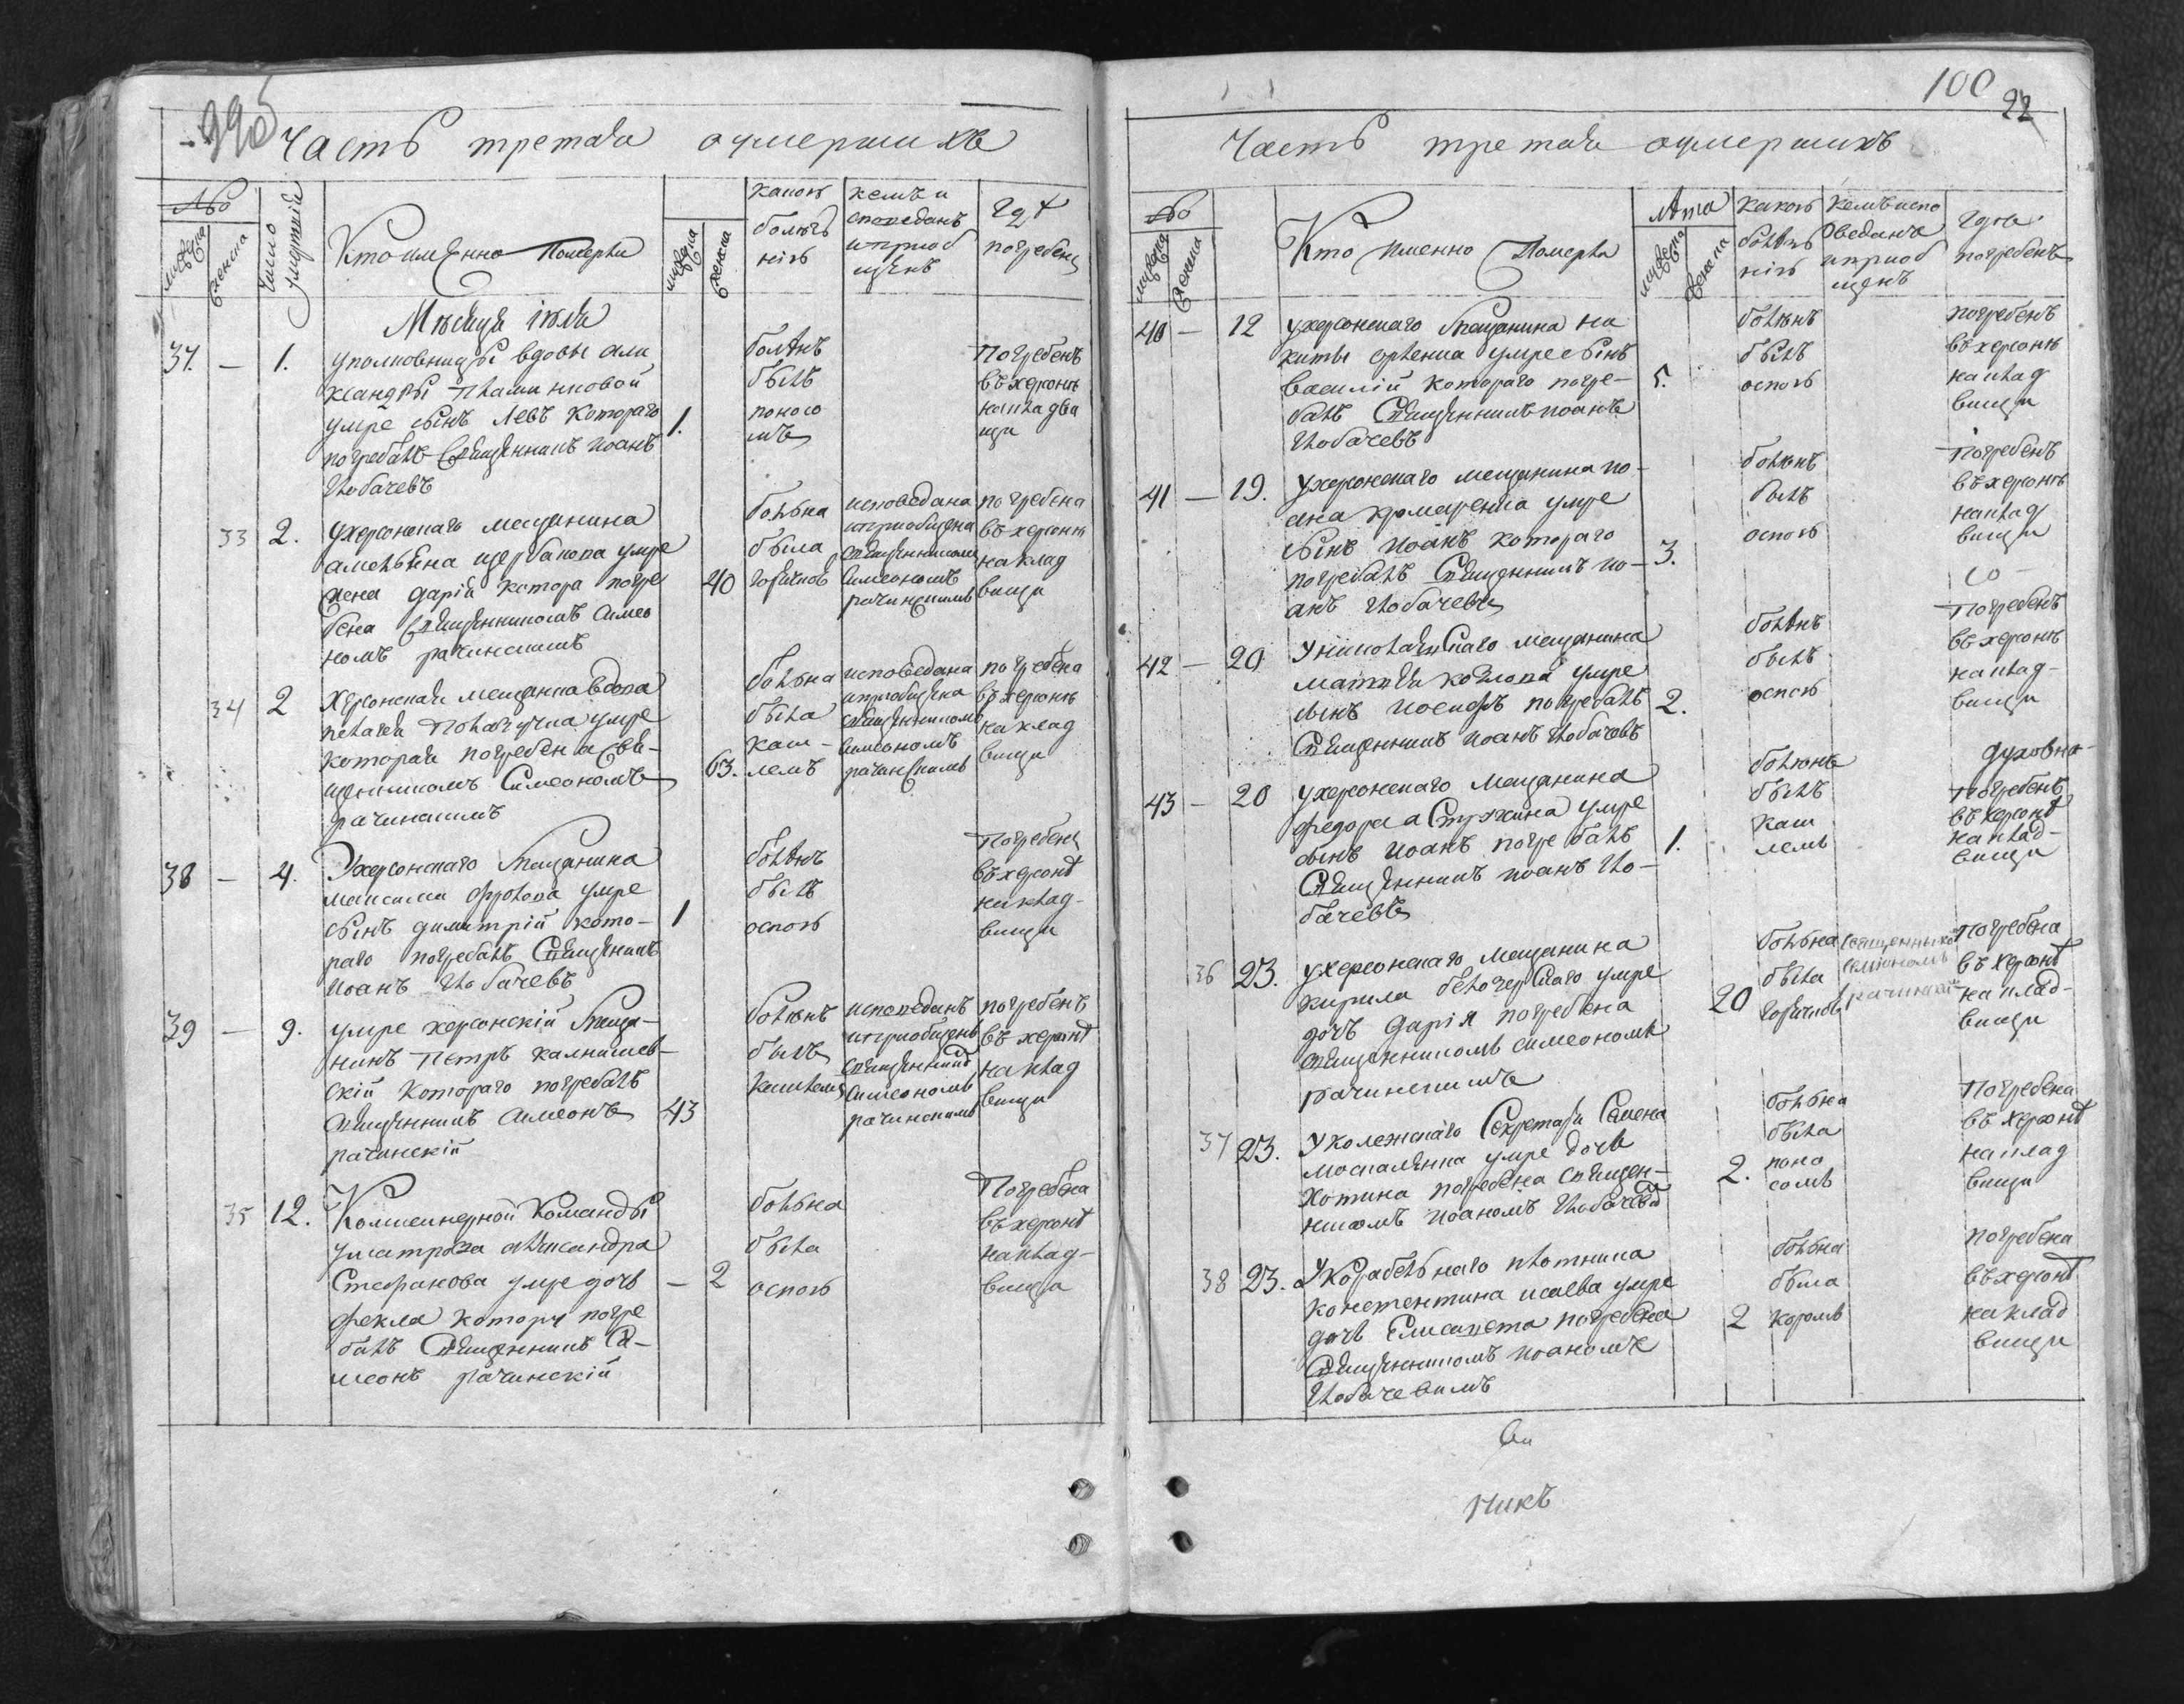 Часть третая оумершихъ
№
мужеска
женска
Число умертвій
Кто именно Померъ
мужеска
женска
какою болѣзнію
кемъ исповеданъ и приобщенъ
Гдѣ погребенъ
Мѣсяца іюля
37. — 1.
уполковницы вдовы але
ксандры
умре сынъ Левъ котораго
погребалъ Священникъ иоанъ
Лобачевъ
1.
боленъ былъ поносомъ
Погребенъ въ херсонѣ на кладвищи
33 2.
ухерсонскаго мещанина
щербакова умре
жена дарія котора погре
бена Священникомъ симео
номъ рачинскимъ
40
больна была горячкою
исповедана и приобщена священникомъ симеономъ рачинскимъ
погребена въ херсонѣ на кладвищи
34 2
Херсонская мещанка вдова
умре
которая погребена Свя-
щенникомъ Симеономъ
рачинскимъ
63.
больна была кашлемъ
исповедана и приобщена священникомъ симеономъ рачинскимъ
погребена въ херсонѣ на кладвищи
38 — 4.
Ухерсонскаго мещанина
максима фролова умре
сынъ димитрій кото-
раго погребалъ Священникъ
иоанъ Лобачевъ
1
боленъ былъ оспою
Погребенъ въ херсонѣ на кладвищи
39 — 9.
умре херсонскій меща-
нинъ Петръ калнишев-
скій котораго погребалъ
священникъ симеонъ
рачинскій
43
боленъ былъ кашлемъ
исповеданъ и приобщенъ священникомъ симеономъ рачинскимъ
погребенъ въ херсонѣ на кладвищи
35 12.
команды
уматроза александра
Стефанова умре дочь
фекла котору погре
балъ Священникъ Си-
меонъ рачинскій
— 2
больна была оспою
Погребена въ херсонѣ на кладвищи
100
22
Часть третая оумершихъ
№
мужеска
женска
Кто именно Померъ
лѣта
мужеска
женска
какою болѣзнію
кемъ исповеданъ и приобщенъ
где погребенъ
40 — 12
ухерсонскаго мещанина на
умре сынъ
василій котораго погре-
балъ Священникъ иоанъ
Лобачевъ
5.
боленъ былъ оспою
погребенъ въ херсонѣ на кладвищи
41 — 19.
ухерсонскаго мещанина ио-
ана крамаренка умре
сынъ иоанъ котораго
погребалъ Священникъ ио-
анъ Лобачевъ
3.
боленъ былъ оспою
Погребенъ въ херсонѣ на кладвищи
42 — 20
Униколаевскаго мещанина
матвея козлова умре
сынъ иосифъ погребалъ
Священникъ иоанъ Лобачевъ
2.
боленъ былъ оспою
Погребенъ въ херсонѣ на кладвищи
43 — 20
ухерсонскаго мещанина
федора Стрхина умре
сынъ иоанъ погребалъ
Священникъ иоанъ Ло-
бачевъ
1.
боленъ былъ кашлемъ
духовна-
Погребенъ въ херсонѣ на кладвищи
36 23.
ухерсонскаго мещанина
кирила белочерскаго умре
дочъ дарія погребена
священникомъ симеономъ
рачинскимъ
20
больна была горячкою
священникомъ симеономъ рачинскимъ
Погребена въ херсонѣ на кладвищи
37 23.
Уколежскаго Секретаря Семена
москаленка умре дочь
Хотина погребена священ-
никомъ иоаномъ Лобачевы
2.
больна была поносомъ
Погребена въ херсонѣ на кладвищи
38 23.
Укорабельнаго плотника
констентина исаева умре
дочь Елисавета погребена
Священникомъ иоаномъ
Лобачевимъ
2
больна была корью
погребена въ херсонѣ на кладвищи
никъ